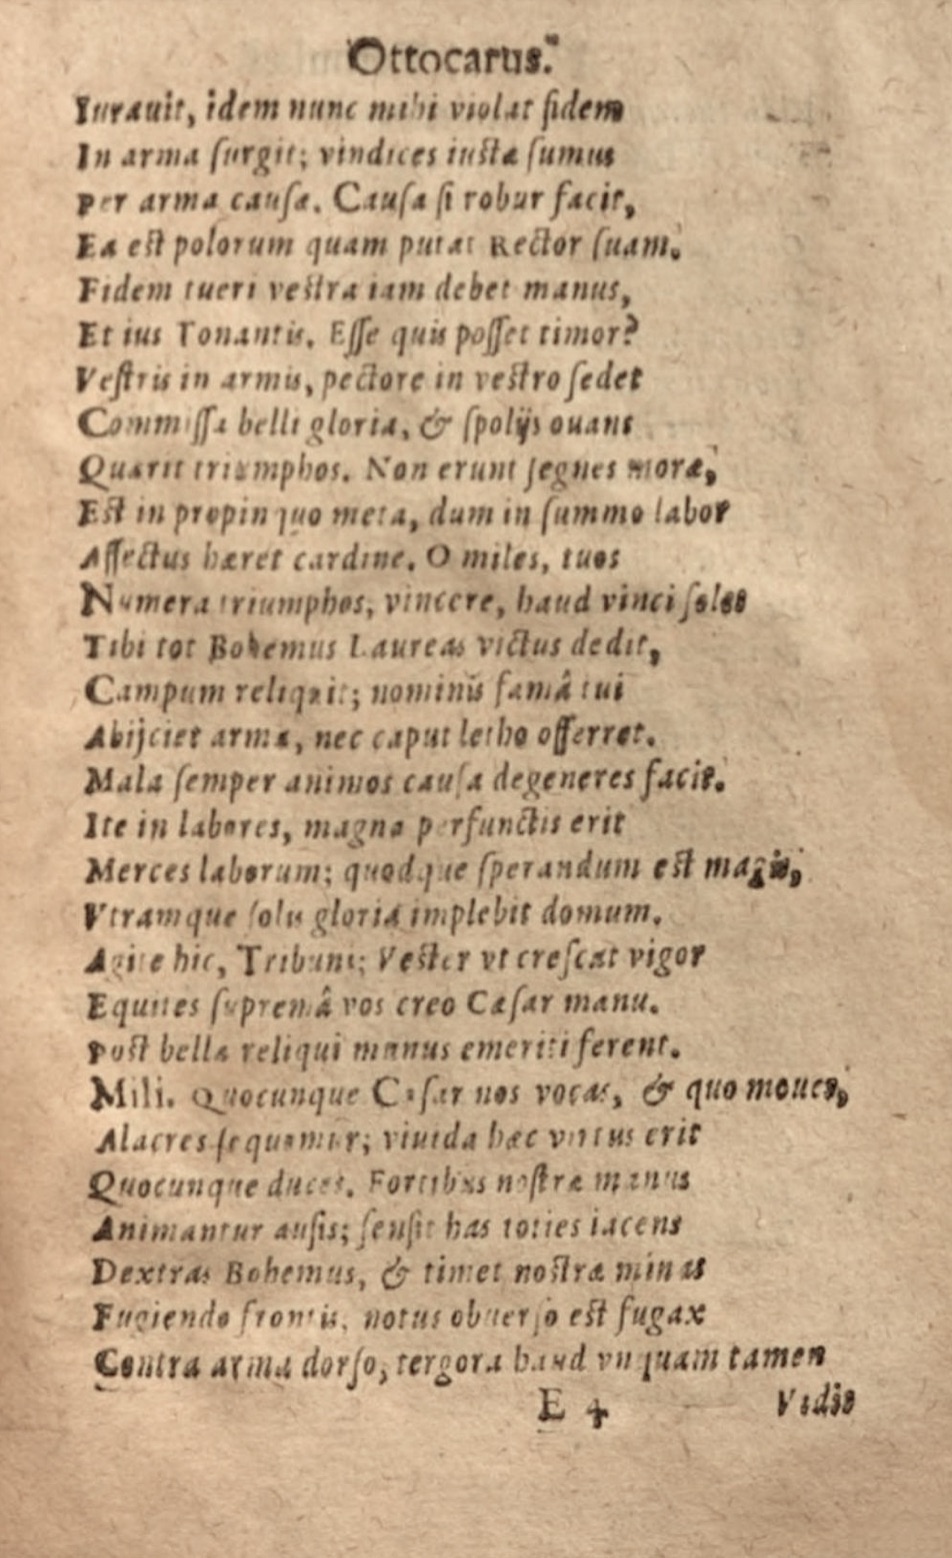 Ottocarus.
Iurauit, idem nunc mihi violat fidem
In arma ſurgit; vindices iustæ ſumus
Per arma cauſæ. Cauſa ſi robur facit,
Ea est polorum quam putat Rector ſuam.
Fidem tueri vestra iam debet manus,
Et ius Tonantis. Eſſe quis poſſet timor?
Veſtris in armis, pectore in vestro ſedet
Commiſſa belli gloria, & ſpolijs ouans
Quærit triumphos. Non erunt ſegnes moræ,
Est in propinquo meta, dum in ſummo labor
Affectus hæret cardine. O miles, tuos
Numera triumphos, vincere, haud vinci ſoles
Tibi tot Bohemus Laureas victus dedit,
Campum reliquit; nominis famâ tui
Abijciet arma, nec caput letho offerret.
Mala ſemper animos cauſa degeneres facit.
Ite in labores, magna perfunctis erit
Merces laborum; quodque ſperandum est magis,
Vtramque ſolis gloria implebit domum.
Agite hic, Tribuni; Vester vt creſcat vigor
Equites ſupremâ vos creo Cæſar manu.
Post bella reliqui munus emeriti ferent.
Mili. Quocunque Cæſar nos vocas, & quo moues,
Alacres ſequemur; viuida hæc virtus erit
Quocunque duces. Fortibus noſtræ manus
Animantur auſis; ſenſit has toties iacens
Dextras Bohemus, & timet nostræ minas
Fugiendo frontis, notus obuerſo est fugax
Contra arma dorſo, tergora haud vnquam tamen
E 4 Vidis